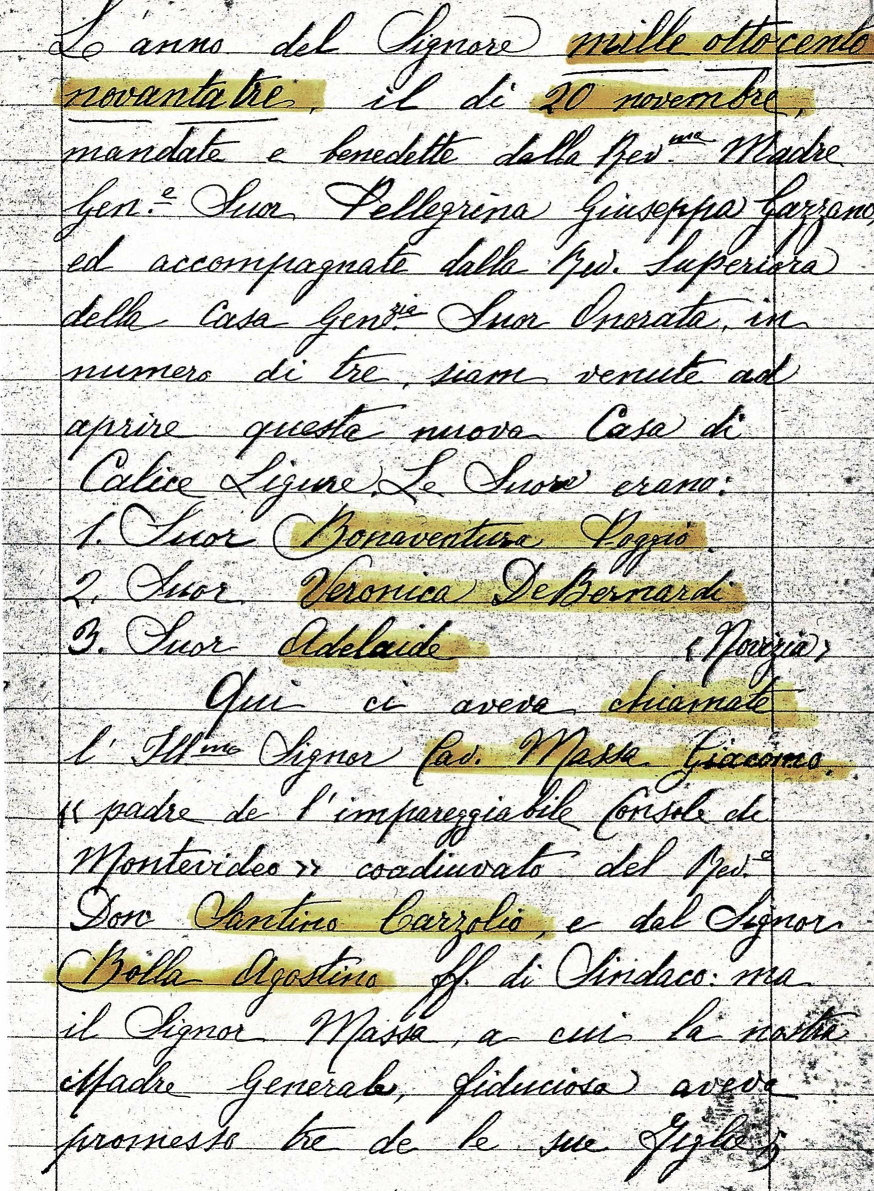 L'anno del Signore mille ottocento
novantatre, il di 20 novembre,
mandate e benedette dalla Rev.ma Madre
Gen.e Suor Pellegrina Giuseppa Gazzano,
ed accompagnate dalla Rev. Superiora
della Casa Gen.zia Suor Onorata, in
numero di tre, siam venute ad
aprire questa nuova Casa di
Calice Ligure. Le Suore erano:
1. Suor Bonaventura Poggio.
2. Suor Veronica DeBernardi
3. Suor Adelaide (Novizia)
Qui ci aveva chiamate
l' Ill.mo Signor Cav. Massa Giacomo.
« padre de l'impareggiabile Console di
Montevideo » coadiuvato del Rev.o
Don Santino Carzolio, e dal Signor
Bolla Agostino ff. di Sindaco: ma
il Signor Massa, a cui la nostra
Madre Generale, fiduciosa aveva
promesso tre de le sue Figlie